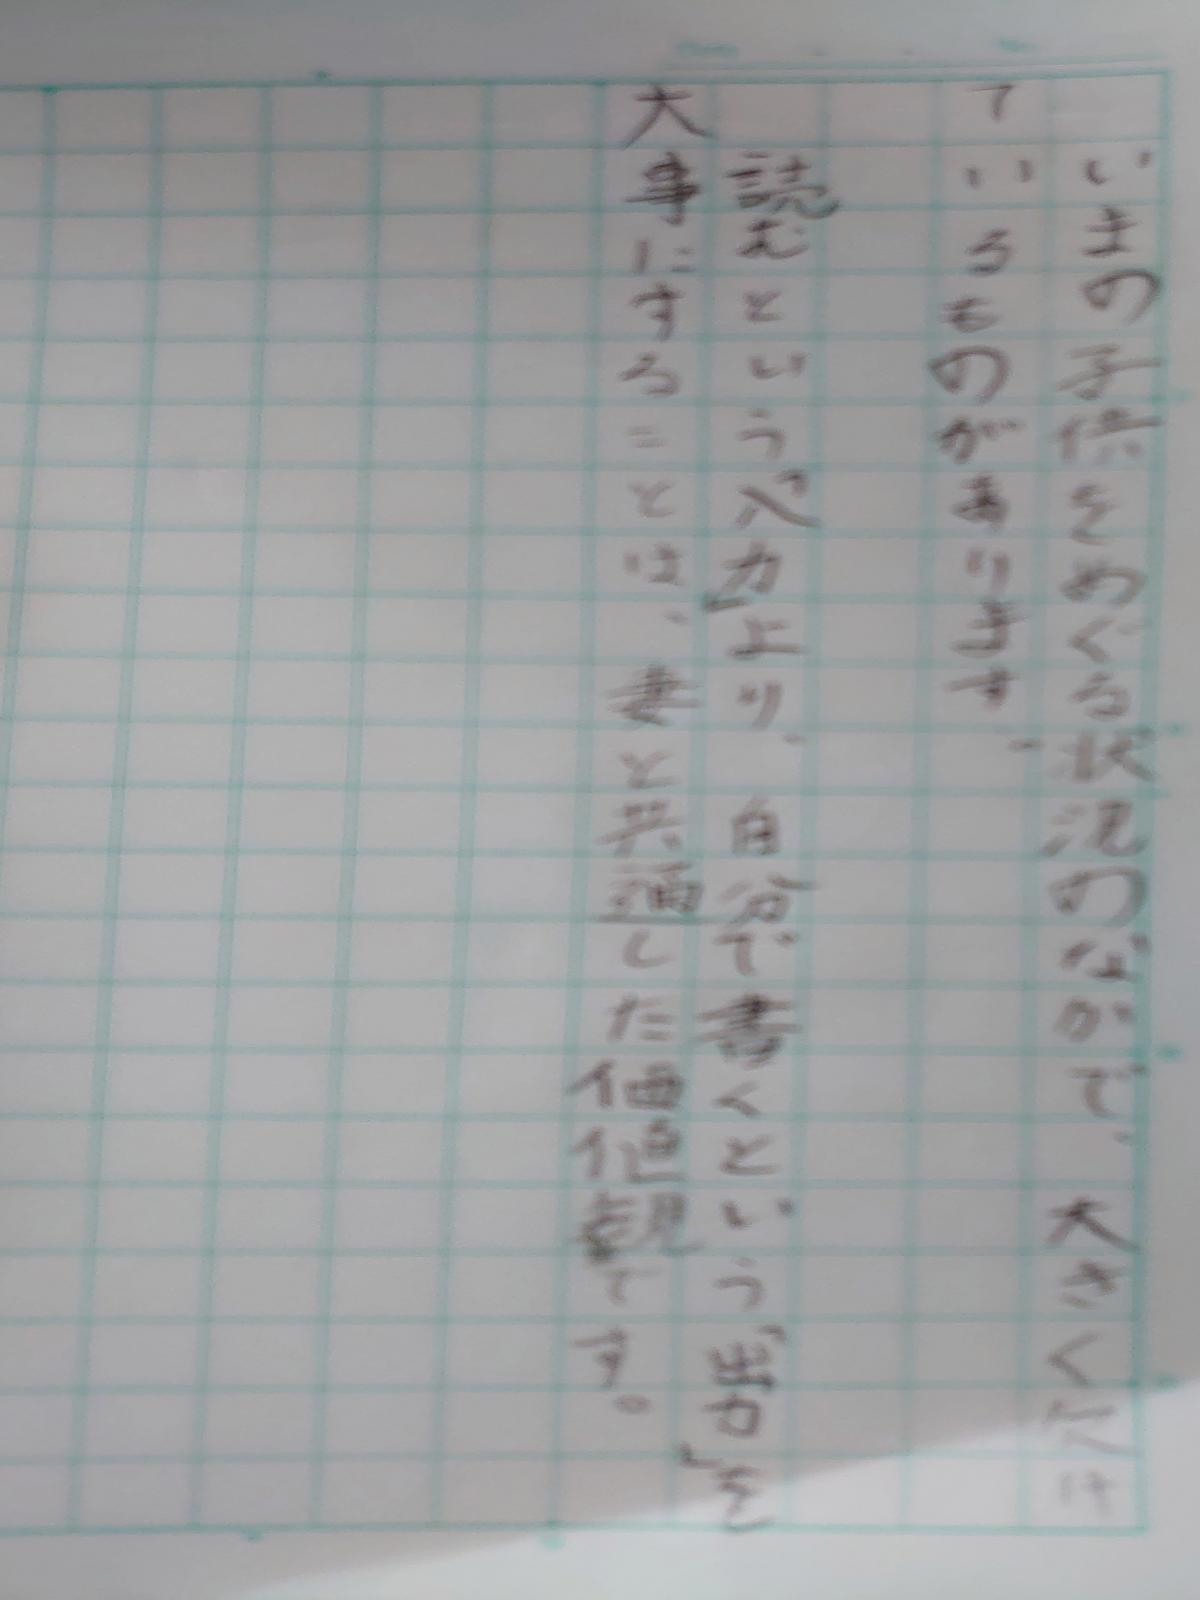 いまの子供をめぐる状況のなかで、大きく欠け
ているものがあります。
読むという「入力」より、自分で書くという「出力」を
大事にすることは、妻と共通した価値観です。